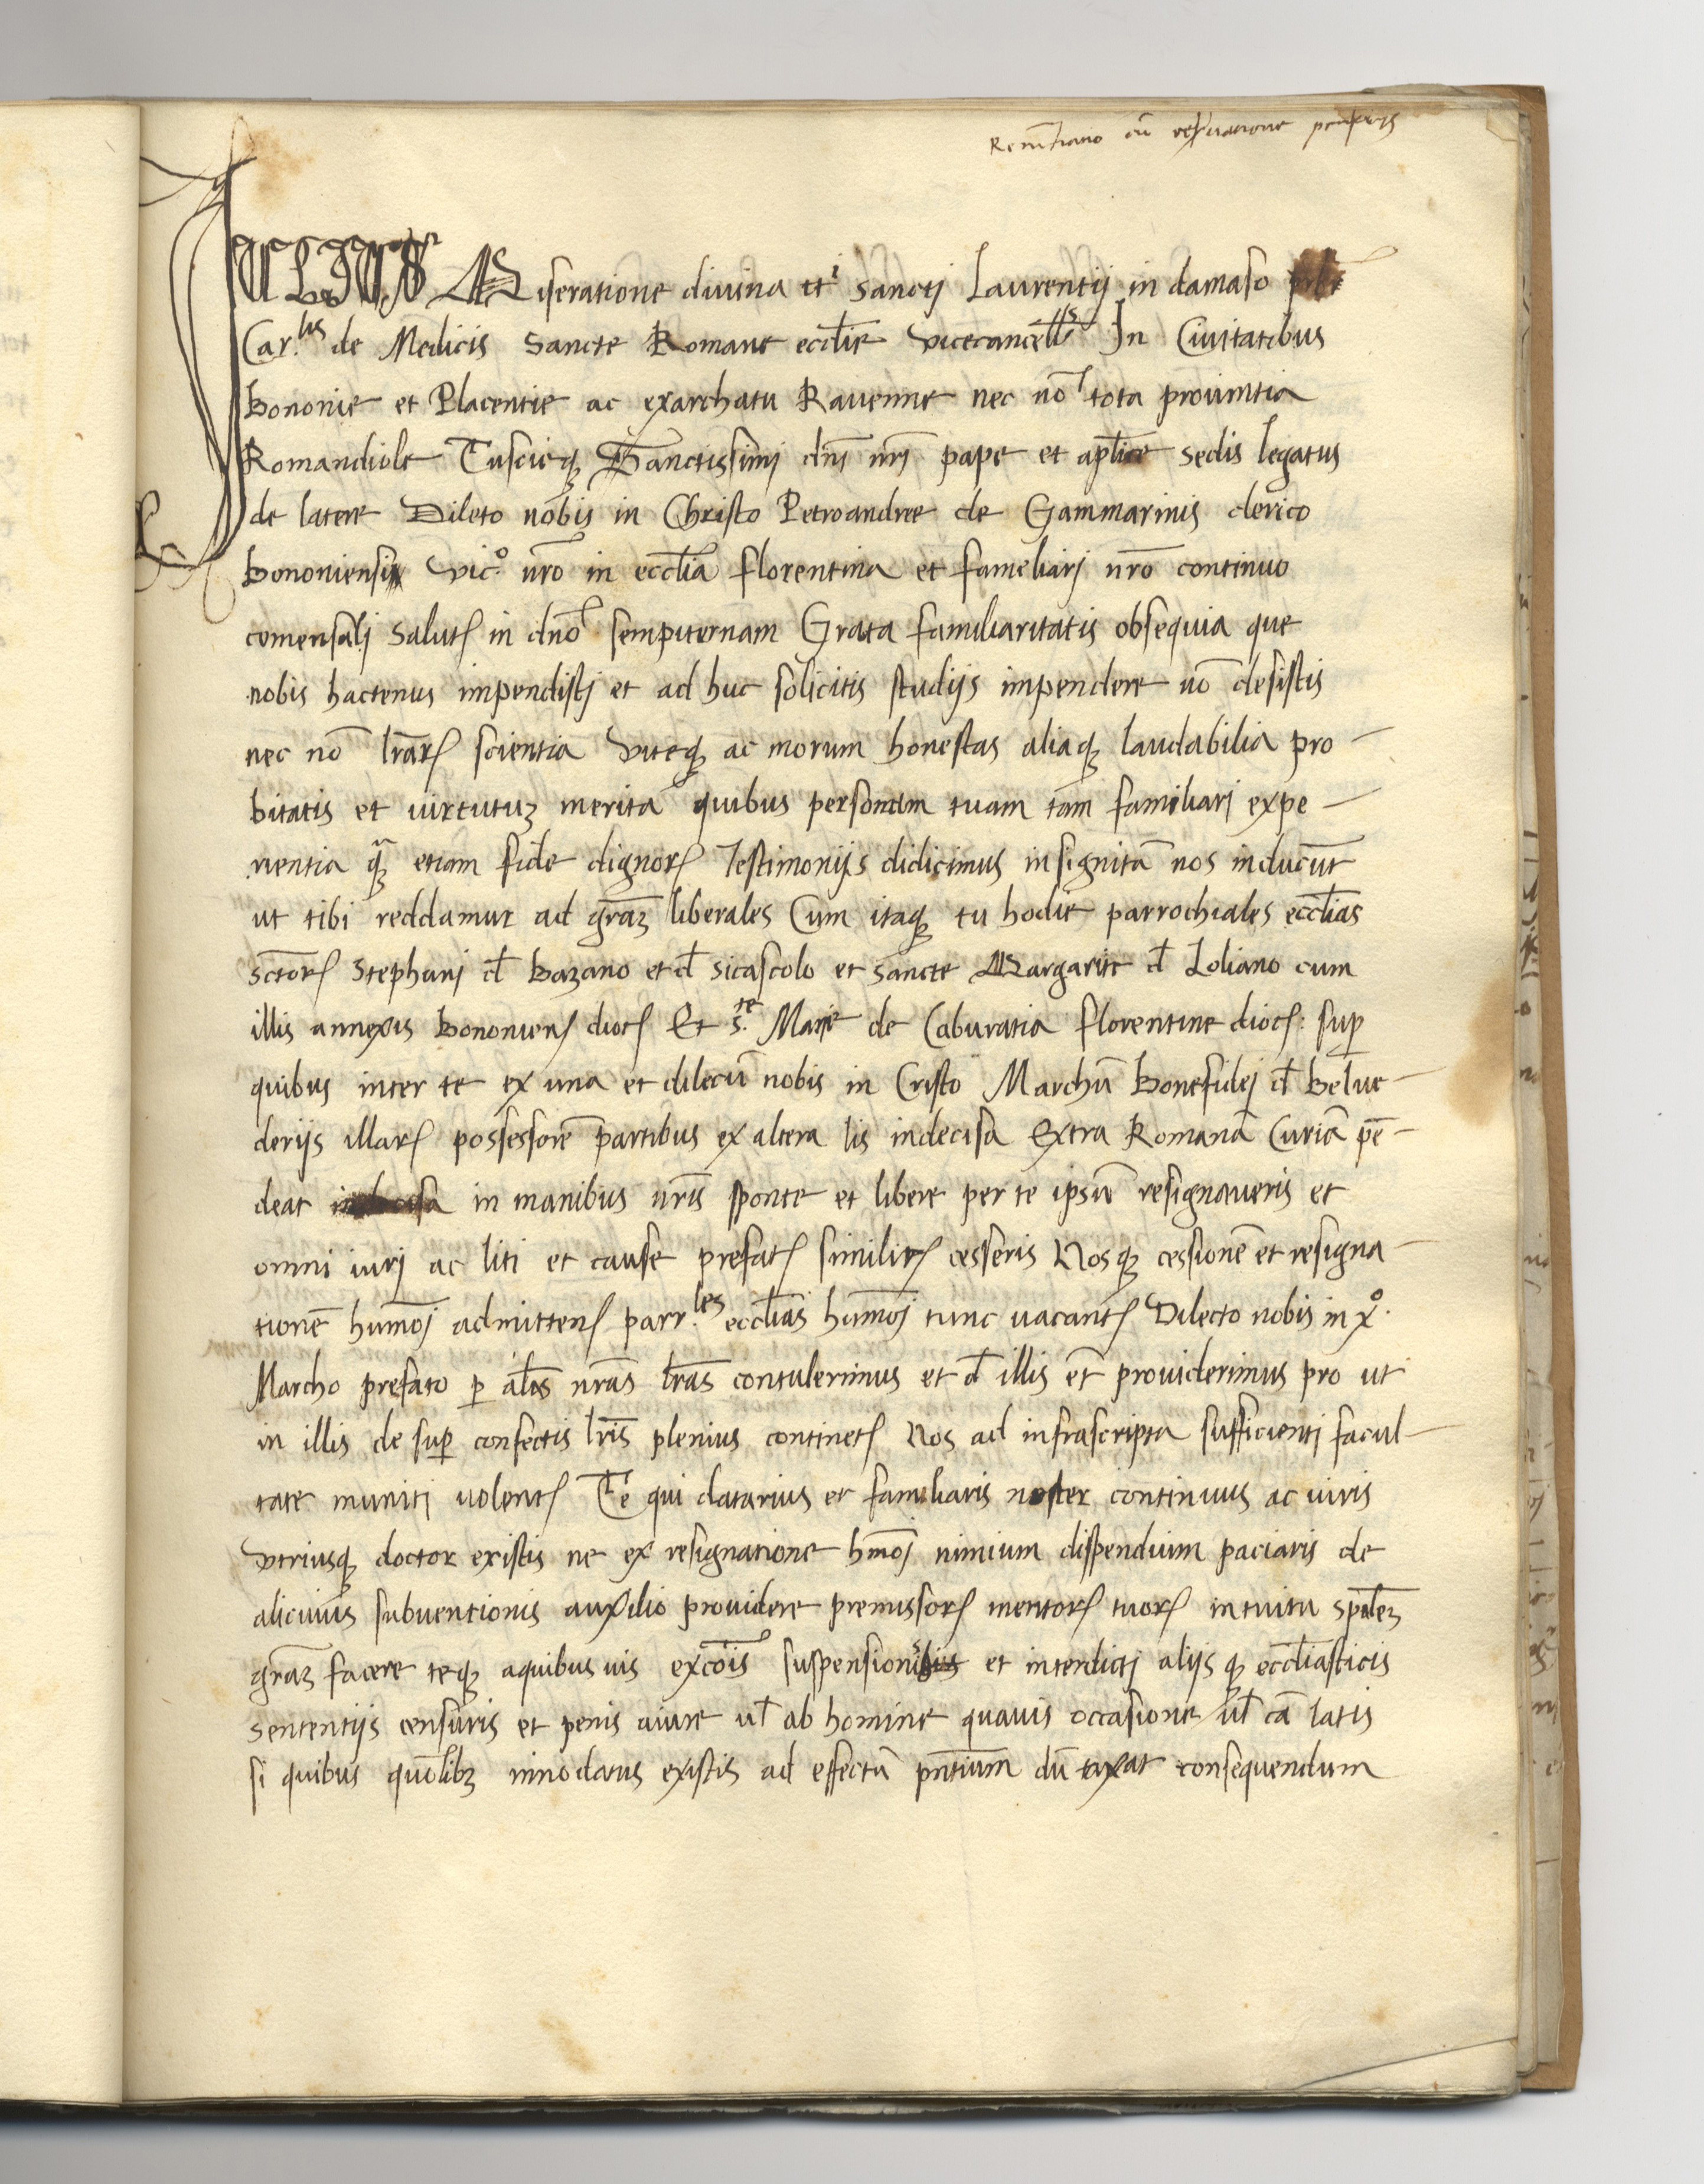 Renūtiatio cū reservatione pensionis
IULIUS Miseratione divina ttⁱ Sanctj Laurentij in damaso pr̄br
Car.ˡⁱˢ de Medicis Sancte Romane eccl̄ie vicecancell̄s In Civitatibus
bononie et Placentie ac exarchatu Ravenne nec nō tota provintia
Romandiole Tuscieq̨ Sanctissimj dn̄i nr̄j pape et apl̄ice sedis legatus
de latere Dileto nobis in Christo Petroandree de Gammarinis clerico
bononiensis vic.º nr̄o in eccl̄ia florentina et fameliarj nr̄o continuo
comensalj salutꝭ in dn̄o sempiternam Grata familiaritatis obsequia que
nobis hactenus impendistj et ad huc solicitis studijs impendere nō desistis
nec nō lr̄arꝭ scientia viteq̨ ac morum honestas aliaq̨ laudabilia pro-
bitatis et virtutuꝫ merita quibus personam tuam tam familiari expe-
rientia q̨̄ etiam fide dignorꝭ Testimonijs didicimus insignitā nos inducūt
ut tibi reddamur ad grāꝫ liberales Cum itaq̨ tu hodie parrochiales eccl̄ias
sctōrꝭ Stephani đ bazano et đ sicascolo et sancte Margarite đ Loliano cum
illis annexis bononienꝭ diocꝭ Et s.ᵗᵉ Marie de Caburatia florentine diocꝭ: suꝑ
quibus inter te ex una et dilectū nobis in Cristo Marchū bonefidej đ belve-
derijs illarꝭ possessorē partibus ex altera lis indecisa Extra Romanā Curiā pē-
deat indecisa in manibus nr̄is sponte et libere per te ipsū resignaveris et
omni iurj ac liti et cause prefatꝭ similitꝭ cesseris Nosq̨ cessionē et resigna-
tionē humōj admittenꝭ parr.ˡᵉˢ eccl̄ias humōj tunc vacantꝭ Dilecto nobis in xº.
Marcho prefato ꝑ al̄as nr̄as lr̄as contulerimus et đ illis et̄ providerimus pro ut
in illis de suꝑ confectis lr̄is plenius continetꝭ Nos ad infrascripta sufficienti facul-
tate muniti volentꝭ Te qui datarius et familiaris noster continuus ac iuris
utriusq̨ doctor existis ne ex resignatione hmōj nimium dispendium paciaris de
alicuius subventionis auxilio providere premissorꝭ meritorꝭ tuorꝭ intuitu spāleꝫ
grāꝫ facere teq̨ aquibus vis excōis suspensionis et interdictj alijs q̨ eccl̄iasticis
sententijs censuris et penis aiure ul̄ ab homine quavis occasione ul̄ cā latis
si quibus quōlibꝫ innodatus existis ad effectū pn̄tium dū taxat consequendum